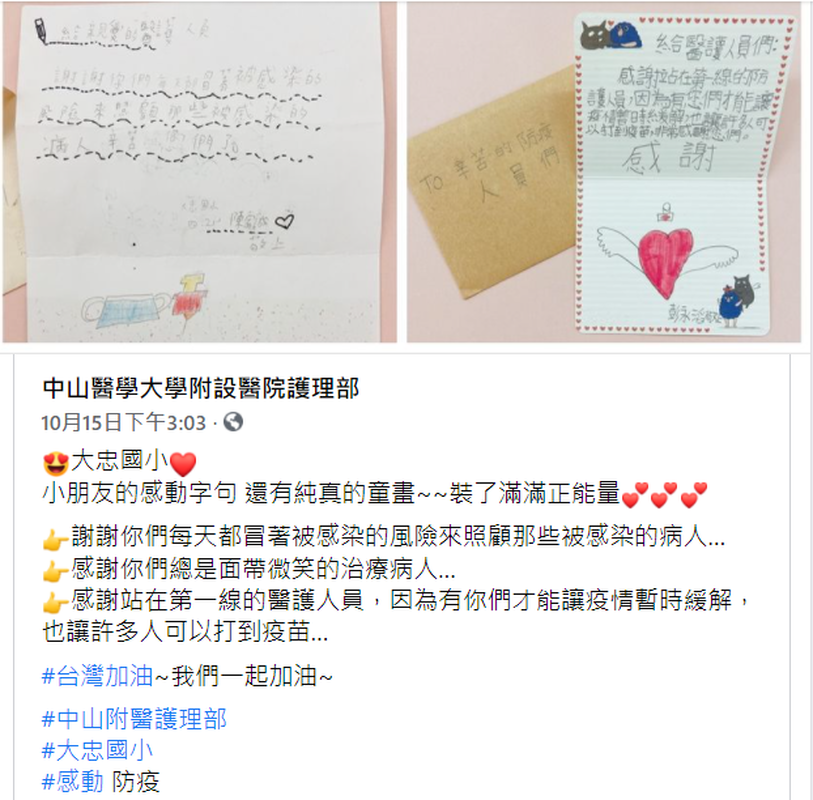 給親愛的醫護人員
謝謝你們每天都冒著被感染的
風險來照顧那些被感染的
病人辛苦你們了
敬上
TO 辛苦的防疫
人員們
給合醫護人員們:
感謝站在第一線的防
護人員,因為有您們才能讓
疫情暫時緩解,也讓許多人可
以打到疫苗,非常感謝您們。
感謝
中山醫學大學附設醫院護理部
10月15日下午3:03 ·
😍大忠國小❤️
小朋友的感動字句 還有純真的童畫~~裝了滿滿正能量💕💕💕
👉謝謝你們每天都冒著被感染的風險來照顧那些被感染的病人...
👉感謝你們總是面帶微笑的治療病人...
👉感謝站在第一線的醫護人員，因為有你們才能讓疫情暫時緩解，
也讓許多人可以打到疫苗...
#台灣加油~我們一起加油~
#中山附醫護理部
#大忠國小
#感動 防疫